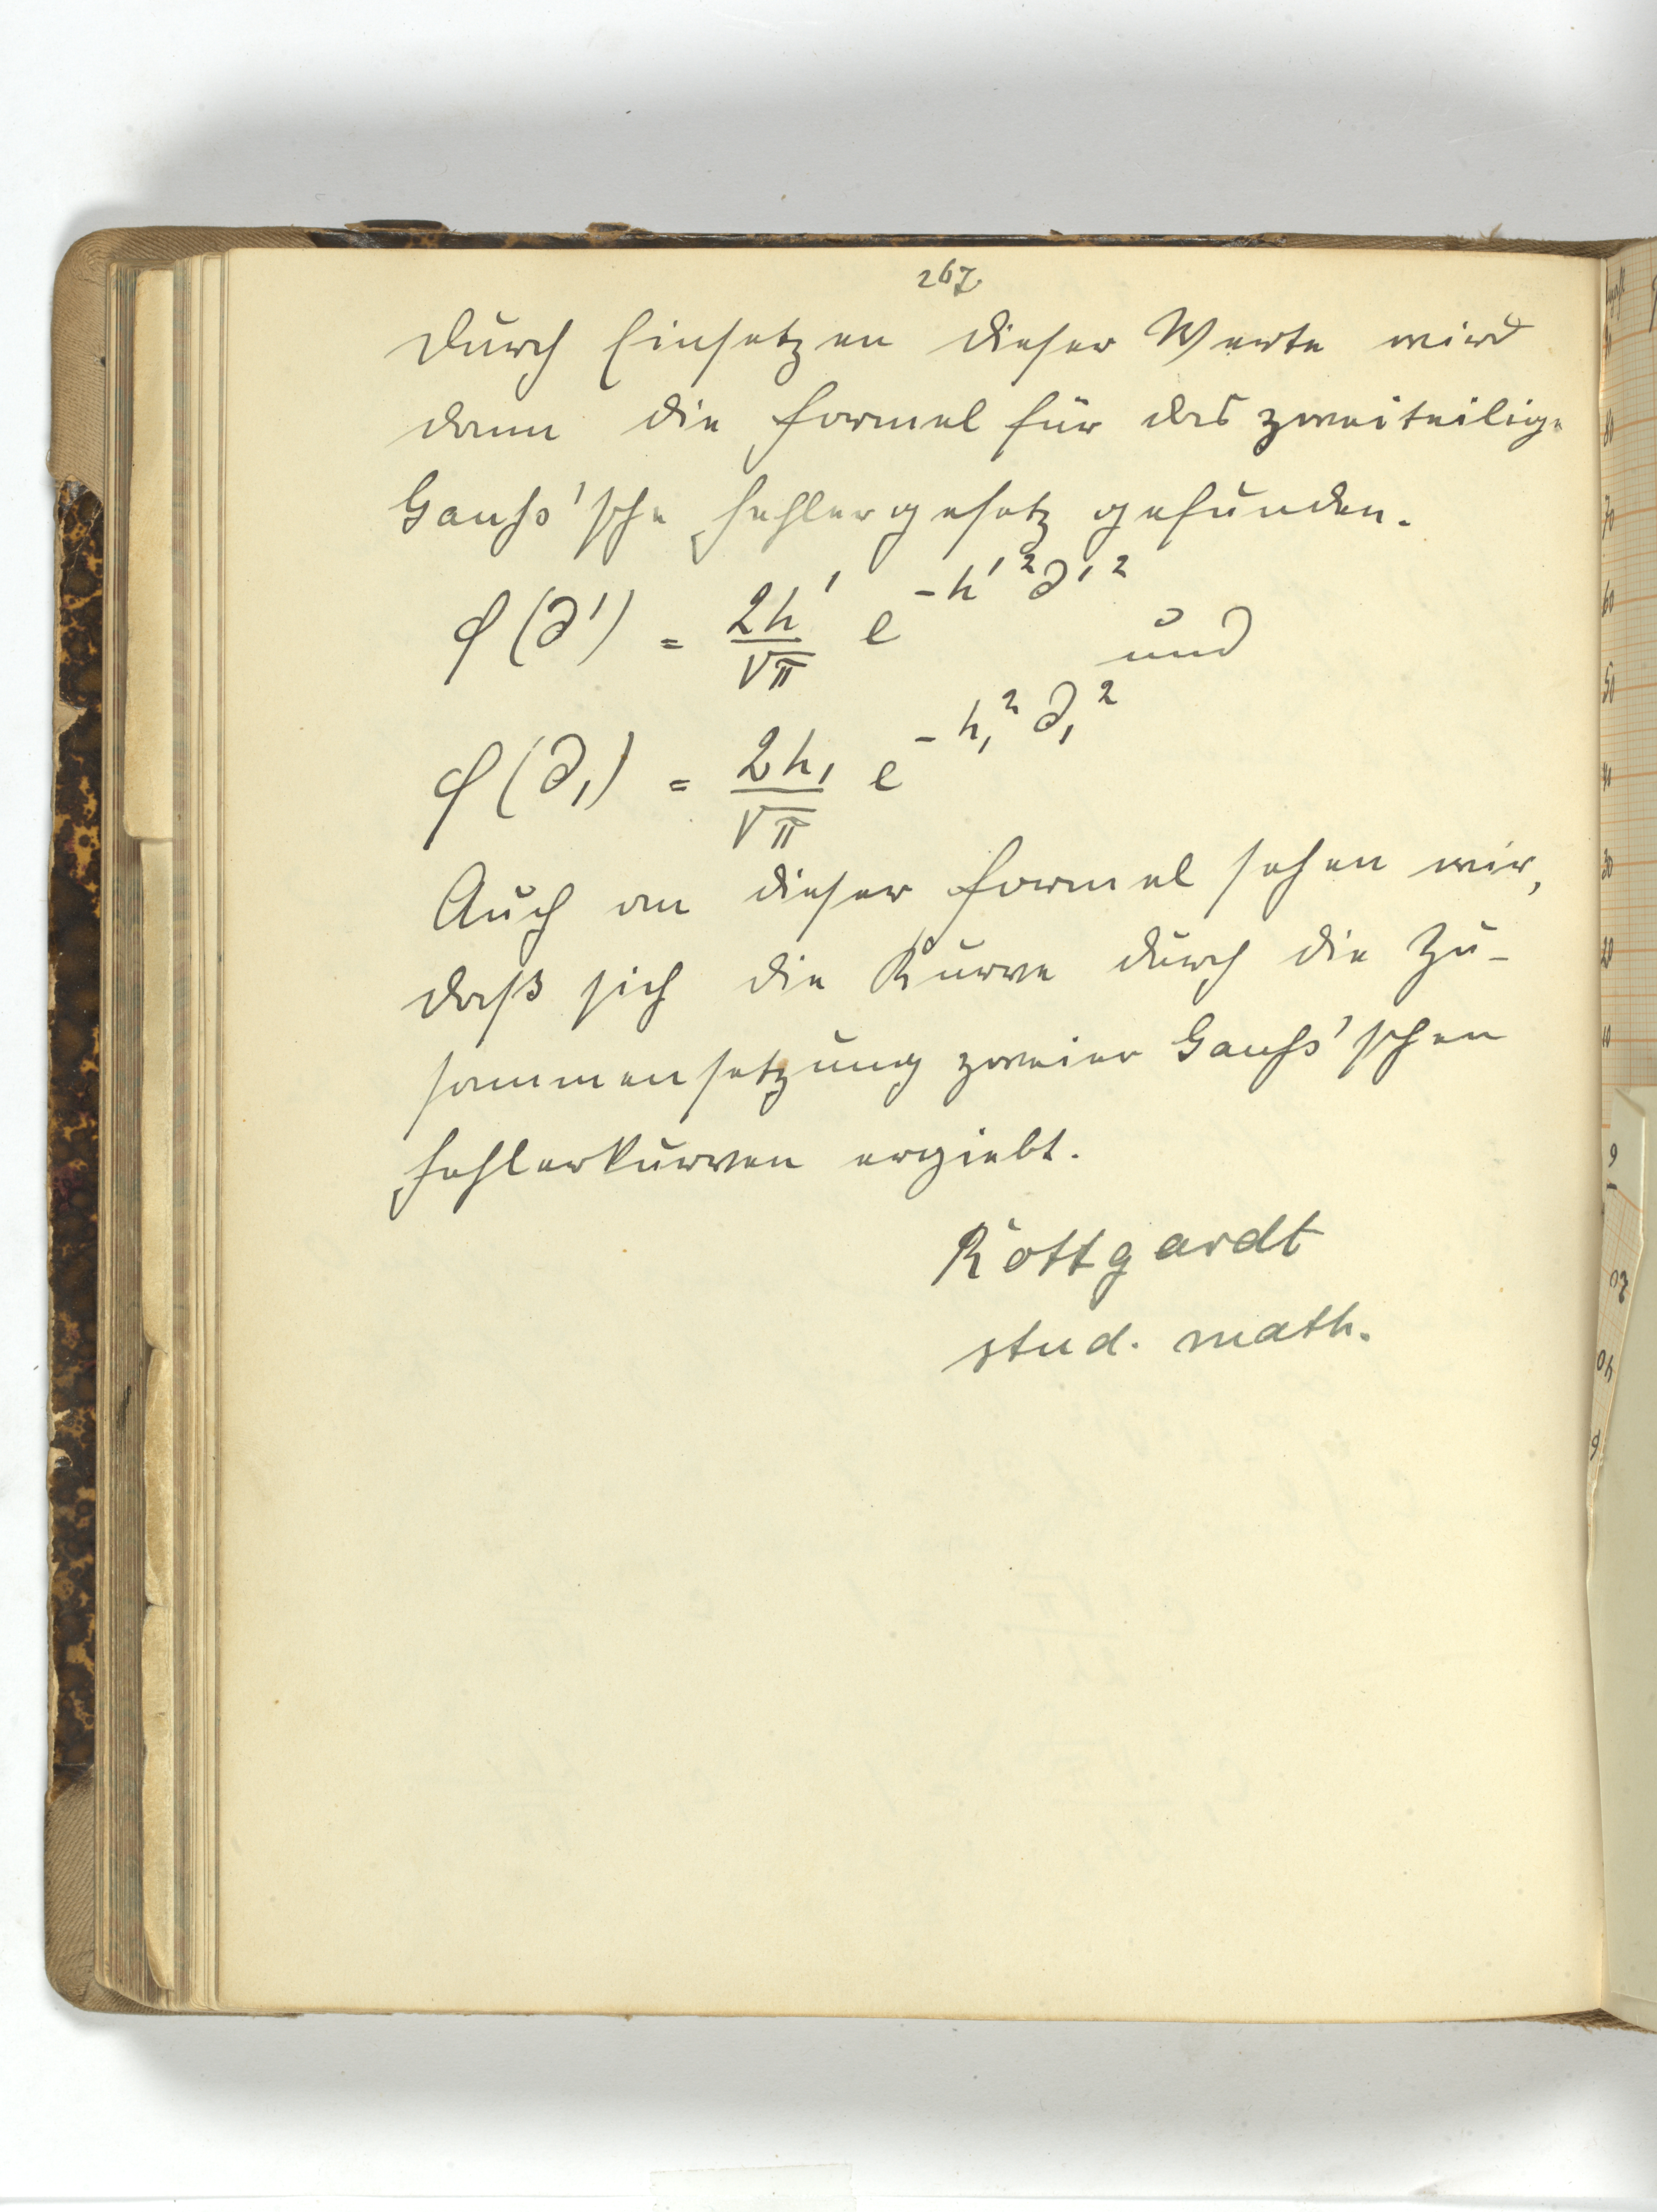 267.
Durch Einsetzen dieser Werte wird
dann die Formel für das zweiteilige
Gauß'sche Fehlergesetz gefunden.
φ(∂') = 2h'/√π e^{-h'^2 ∂'^2} und
φ(∂₁) = 2h₁/√π e^{-h₁^2 ∂₁^2}
Auch an dieser Formel sehen wir,
daß sich die Kurve durch die Zu-
sammensetzung zweier Gauß'schen
Fehlerkurven ergiebt.
Rottgardt
stud. math.
80
70
60
50
40
30
20
10